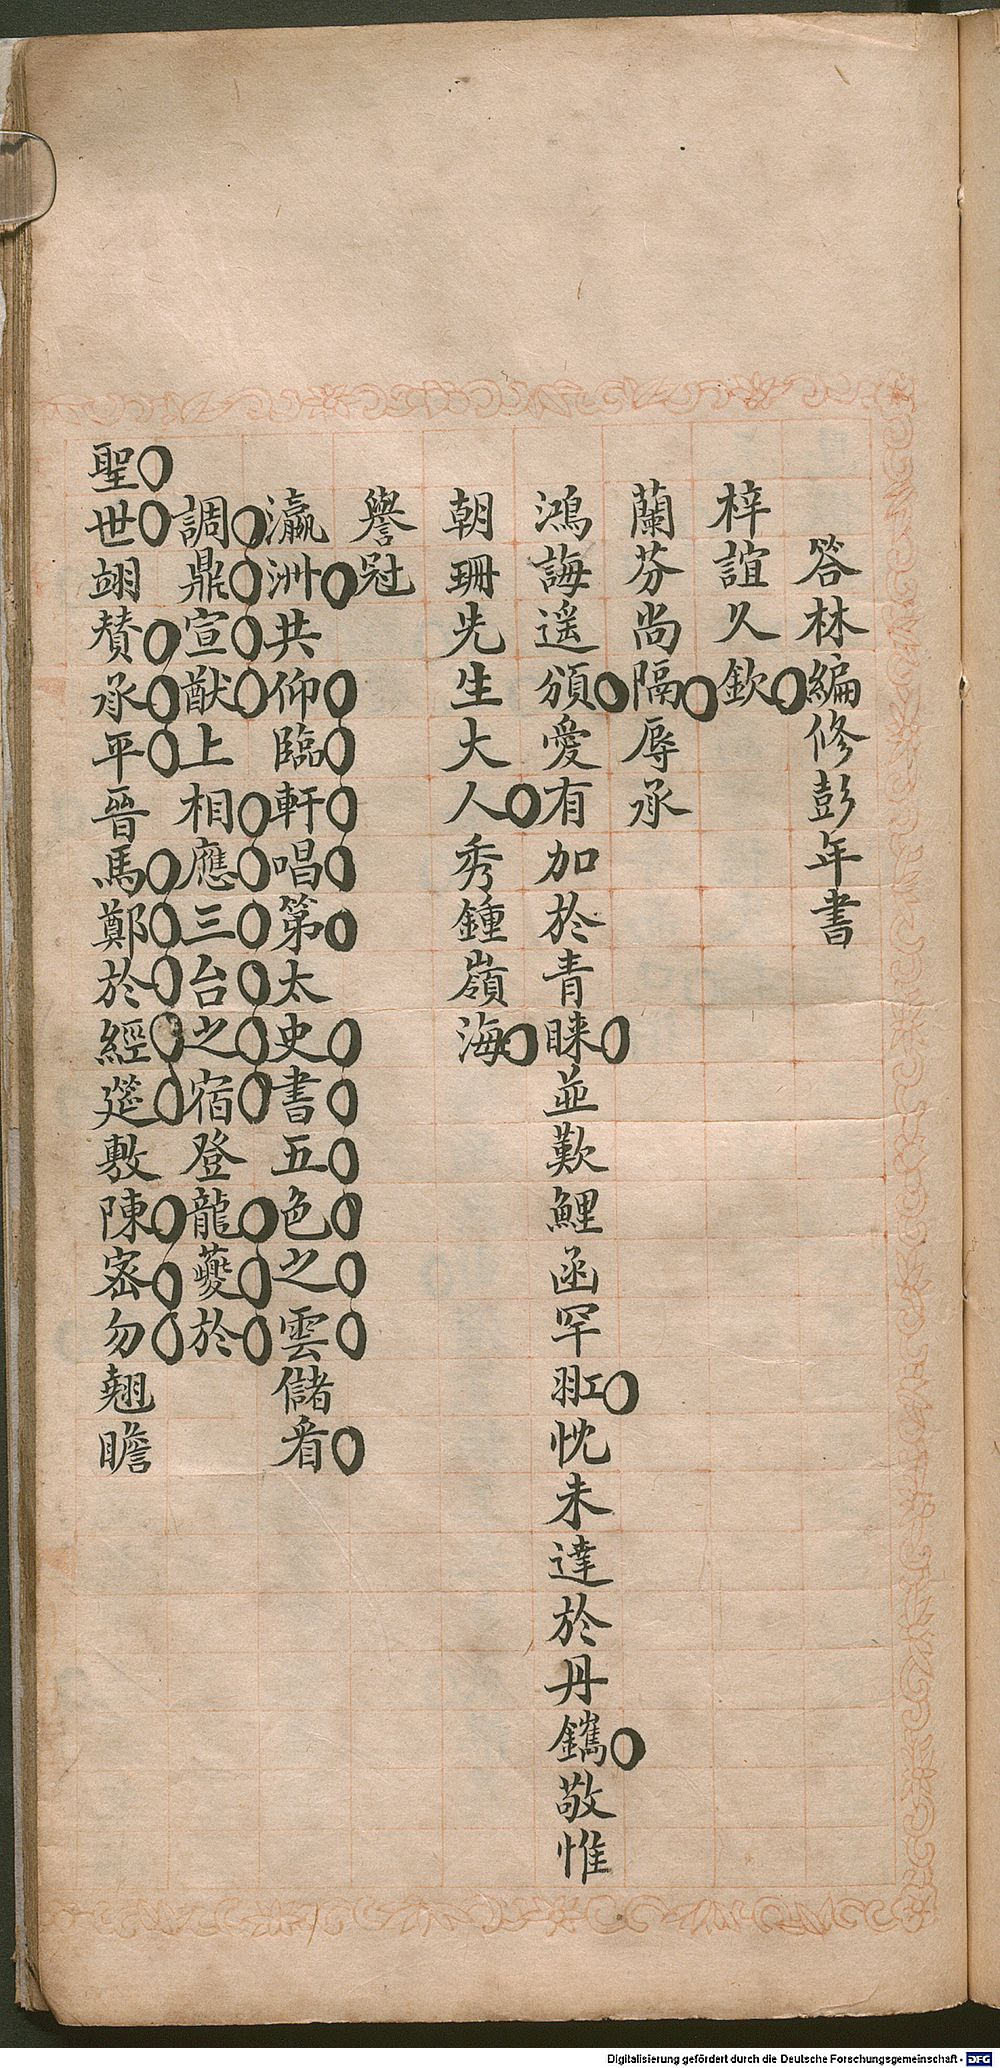 答林編修彭年書
梓誼久欽
蘭芬尚隔辱承
鴻誨遥頒愛有加於青睞並歎鯉函罕䎕忱未達於丹鑴敬惟
朝珊先生大人秀鍾嶺海
譽冠
瀛洲共仰臨軒唱第太史書五色之雲儲看
調鼎宣猷上相應三台之宿登龍夔於
聖世翊賛承平晉馬鄭於經筵敷陳密勿翹瞻
Digitalisierung gefördert durch die Deutsche Forschungsgemeinschaft - DFG